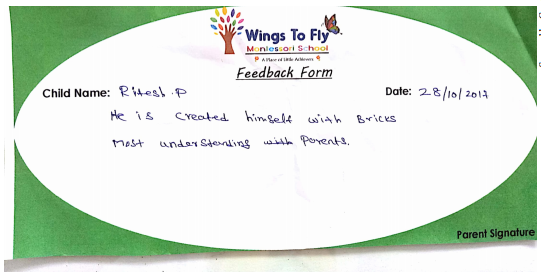 Wings To Fly
Montessori School
A Place of Little Achievers
Feedback Form
Child Name: Ritesh.P Date: 28/10/2017
He is created himself with Bricks
Most understanding with Parents.
Parent Signature